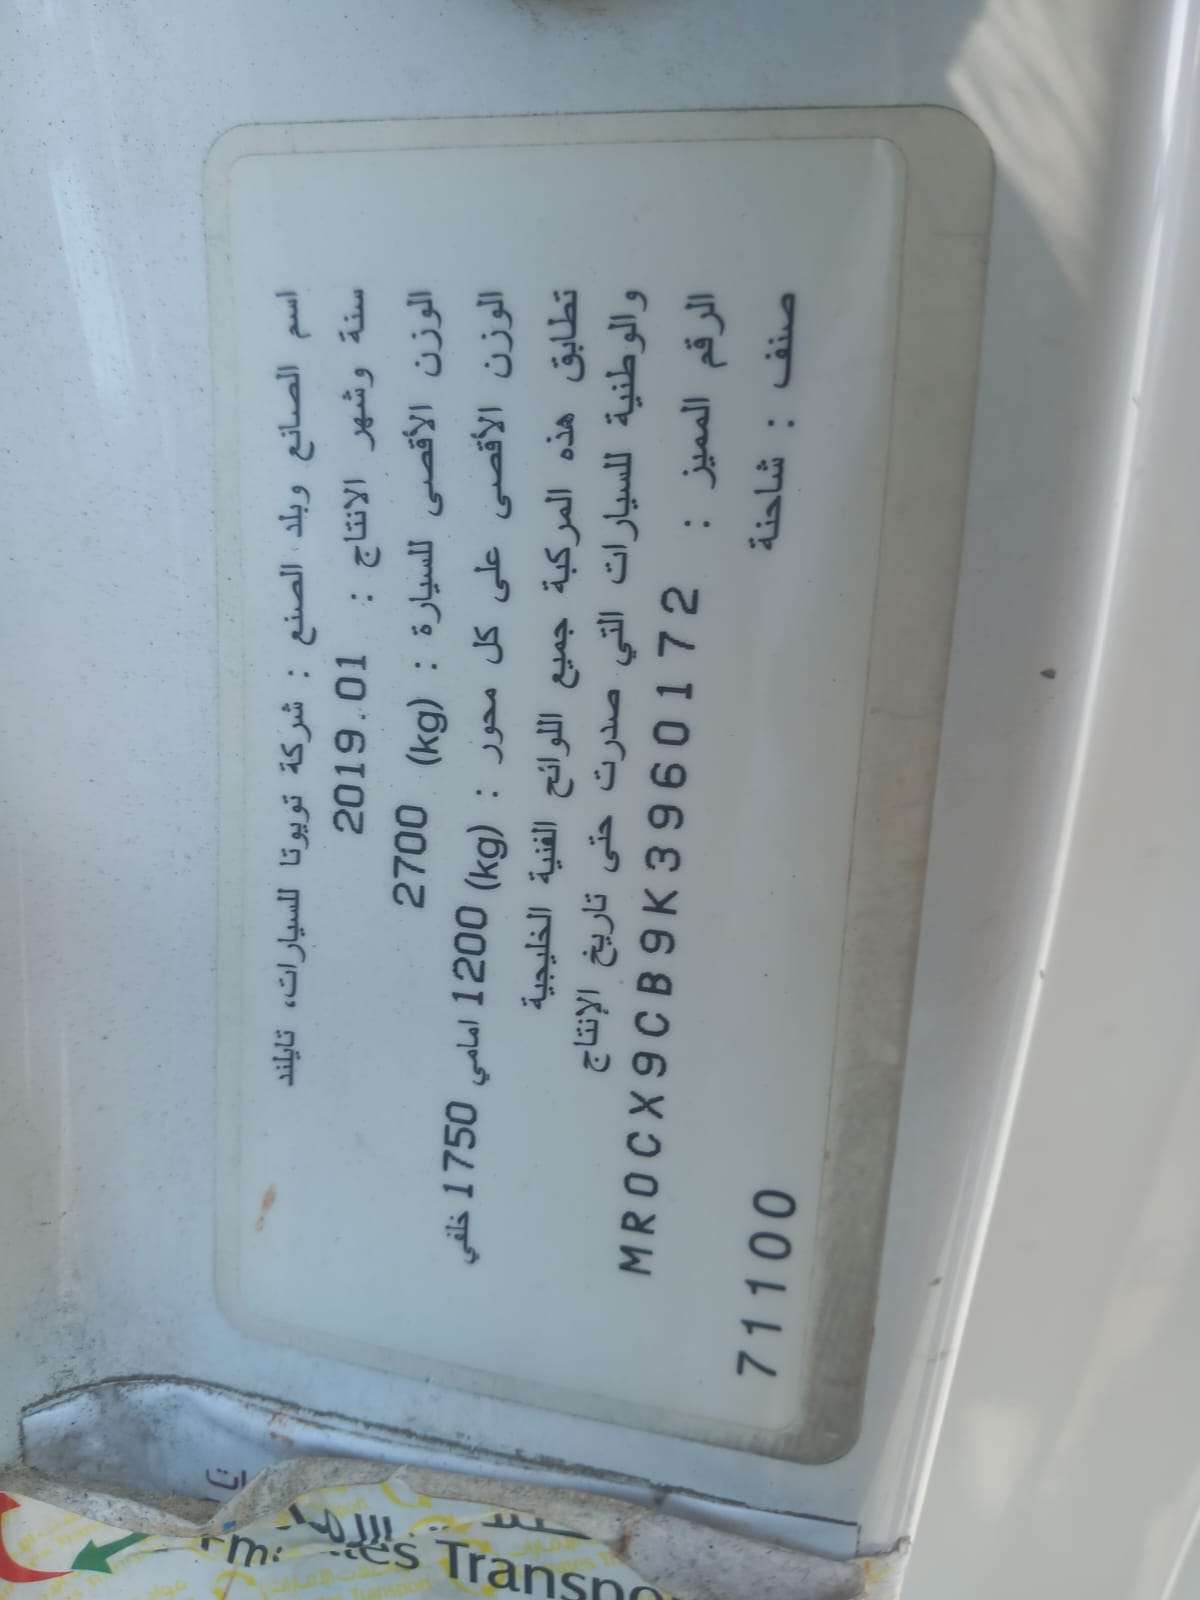 اسم الصانع وبلد الصنع : شركة تويوتا للسيارات، تايلند
سنة وشهر الانتاج : 2019.01
الوزن الأقصى للسيارة : (kg) 2700
الوزن الأقصى على كل محور : (kg) 1200 امامي 1750 خلفي
تطابق هذه المركبة جميع اللوائح الفنية الخليجية
والوطنية للسيارات التي صدرت حتى تاريخ الإنتاج
الرقم المميز : MR0CX9CB9K3960172
صنف : شاحنة
71100
Transpo